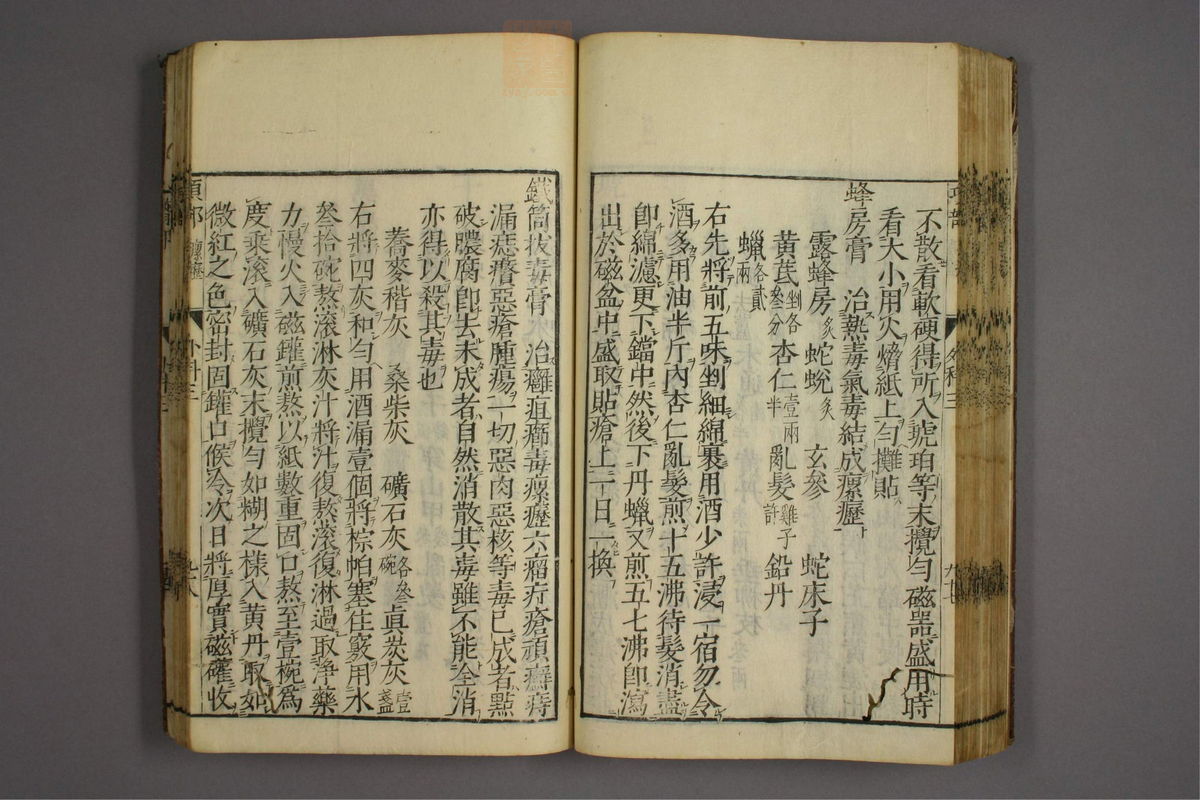 不散看軟硬得所入琥珀等末攪勻磁器盛用時
看大小用火㷰紙上勻攤貼
蜂房膏　治熱毒氣毒結成瘰癧
露蜂房炙　蛇蛻炙　玄參　蛇床子
黃芪剉各叄分　杏仁壹兩半　亂髮雞子許　鉛丹
蠟各貳兩
右先將前五味剉細綿裹用酒少許浸一宿勿令
酒多用油半斤內杏仁亂髮煎十五沸待髮消盡
卽綿濾更下鐺中然後下丹蠟又煎五七沸卽瀉
出於磁盆中盛取貼瘡上一日一換
鐵筒拔毒膏　治癰疽癤毒瘰癧六瘤疔瘡頑癬痔
漏痣靨惡瘡腫瘍一切惡肉惡核等毒已成者點
破膿腐卽去未成者自然消散其毒雖不能全消
亦得以殺其毒也
蕎麥稭灰　桑柴灰　礦石灰各叄碗　眞炭灰壹盞
右將四灰和勻用酒漏壹個將棕帕塞住竅用水
叄拾碗熬滾淋灰汁將汁復熬滾復淋過取淨藥
力慢火入磁鑵煎熬以紙數重固口熬至壹椀爲
度乘滾入礦石灰末攪勻如糊之樣入黃丹取如
微紅之色密封固鑵口候冷次日將厚實磁鑵收
頁部　瘰癧　外科三　九八
外科三　九七